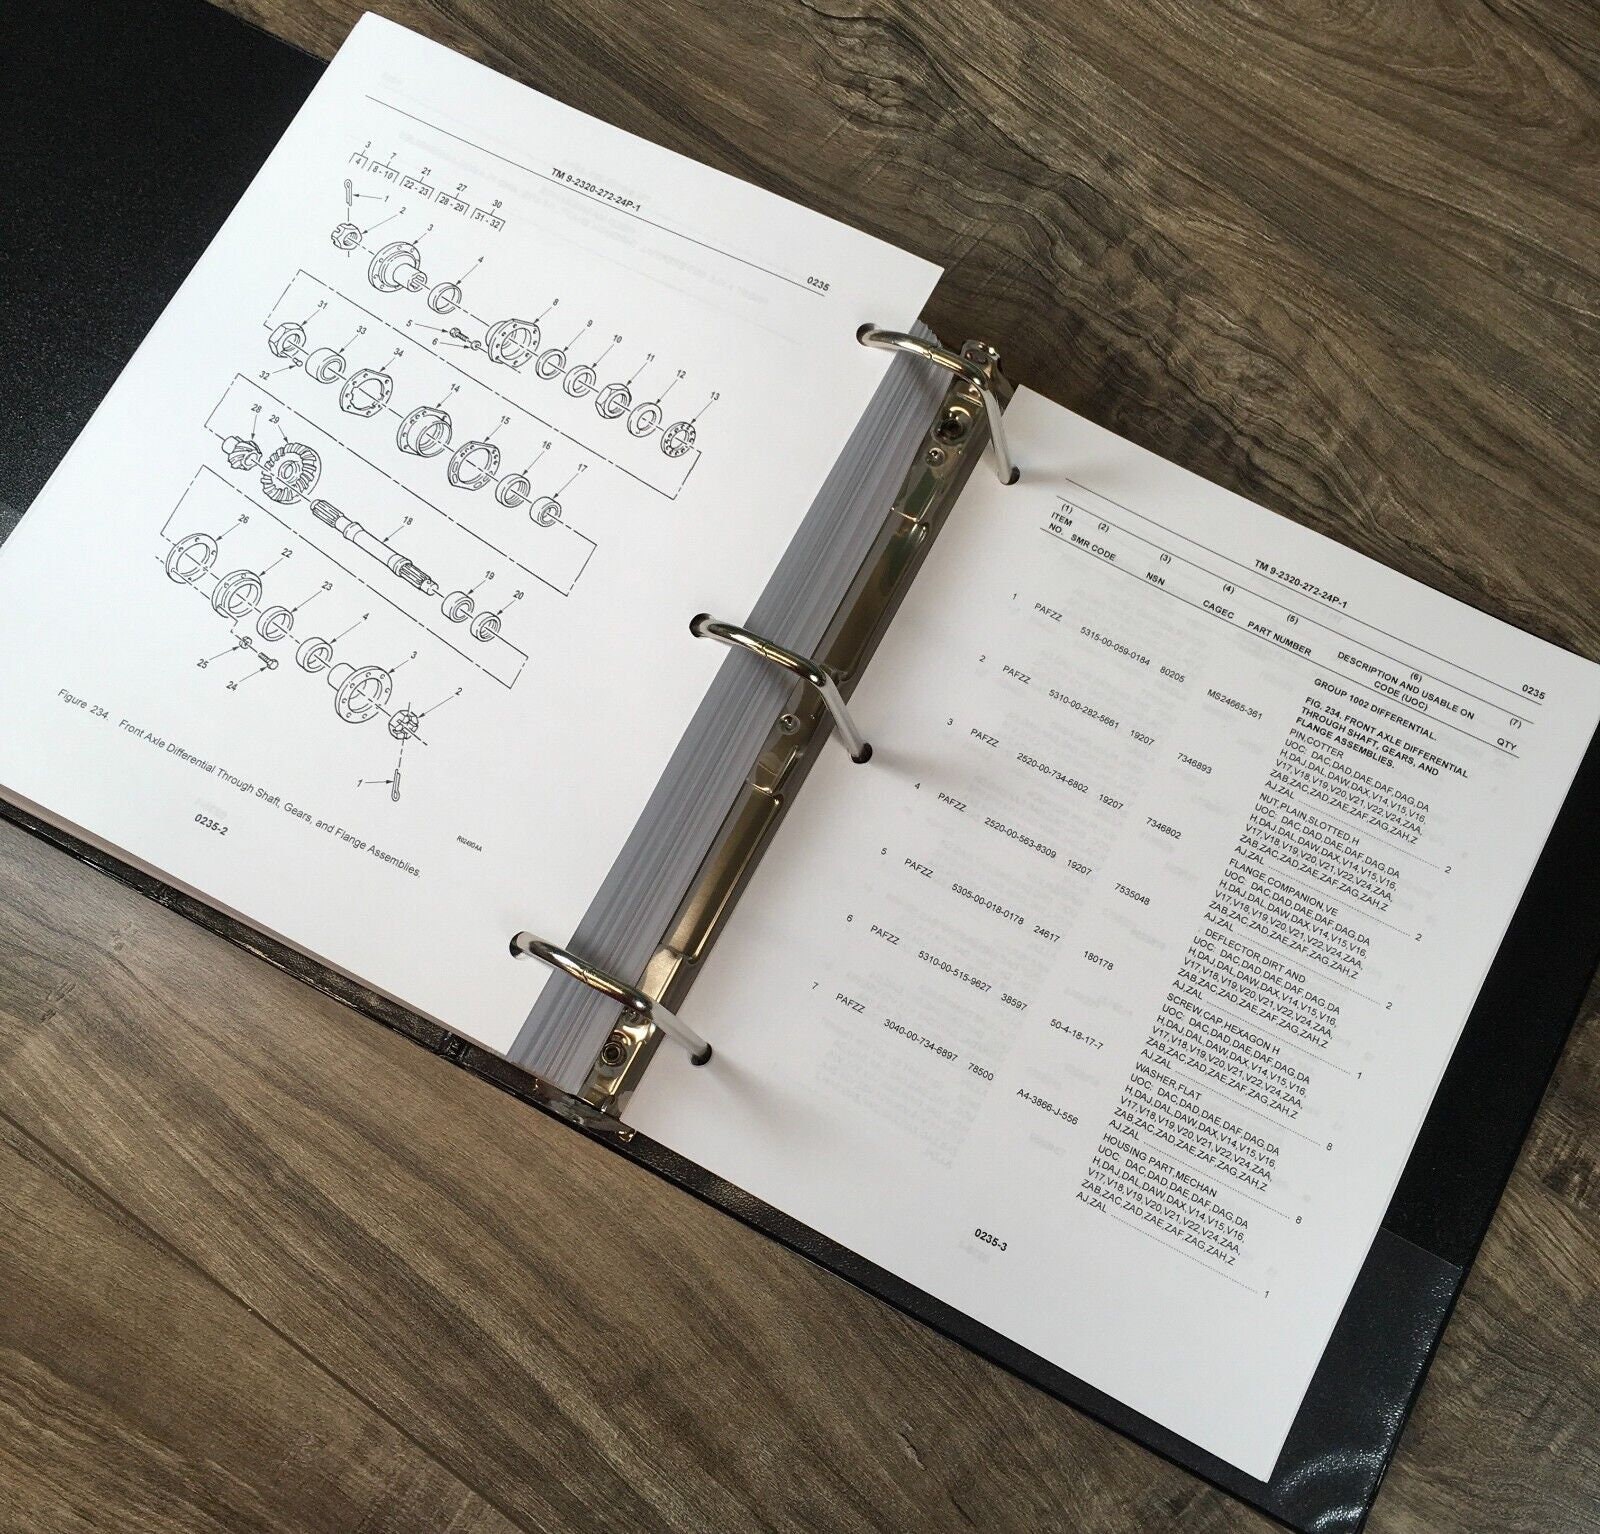 TM 9-2320-272-24P-1
0235
3
4
7
8 - 10
21
22 - 23
27
28 - 29
30
31 - 32
1
2
3
4
5
6
8
9
10
11
12
13
31
32
33
34
14
15
16
17
28
29
18
19
20
26
22
23
4
3
2
25
24
1
Figure 234. Front Axle Differential Through Shaft, Gears, and Flange Assemblies.
0235-2
TM 9-2320-272-24P-1
0235
(1) (2) (3) (4) (5) (6) (7)
ITEM NO. SMR CODE NSN CAGEC PART NUMBER DESCRIPTION AND USABLE ON CODE (UOC) QTY
GROUP 1002 DIFFERENTIAL.
FIG. 234. FRONT AXLE DIFFERENTIAL
THROUGH SHAFT, GEARS, AND
FLANGE ASSEMBLIES.
1 PAFZZ 5315-00-059-0184 80205 MS24665-361 PIN,COTTER
UOC: DAC,DAD,DAE,DAF,DAG,DA
H,DAJ,DAL,DAW,DAX,V14,V15,V16,
V17,V18,V19,V20,V21,V22,V24,ZAA,
ZAB,ZAC,ZAD,ZAE,ZAF,ZAG,ZAH,Z
AJ,ZAL 2
2 PAFZZ 5310-00-282-5661 19207 7346893 NUT,PLAIN,SLOTTED,H
UOC: DAC,DAD,DAE,DAF,DAG,DA
H,DAJ,DAL,DAW,DAX,V14,V15,V16,
V17,V18,V19,V20,V21,V22,V24,ZAA,
ZAB,ZAC,ZAD,ZAE,ZAF,ZAG,ZAH,Z
AJ,ZAL 2
3 PAFZZ 2520-00-734-6802 19207 7346802 FLANGE,COMPANION,VE
UOC: DAC,DAD,DAE,DAF,DAG,DA
H,DAJ,DAL,DAW,DAX,V14,V15,V16,
V17,V18,V19,V20,V21,V22,V24,ZAA,
ZAB,ZAC,ZAD,ZAE,ZAF,ZAG,ZAH,Z
AJ,ZAL 2
4 PAFZZ 2520-00-563-8309 19207 7535048 DEFLECTOR,DIRT AND
UOC: DAC,DAD,DAE,DAF,DAG,DA
H,DAJ,DAL,DAW,DAX,V14,V15,V16,
V17,V18,V19,V20,V21,V22,V24,ZAA,
ZAB,ZAC,ZAD,ZAE,ZAF,ZAG,ZAH,Z
AJ,ZAL 1
5 PAFZZ 5305-00-018-0178 24617 180178 SCREW,CAP,HEXAGON H
UOC: DAC,DAD,DAE,DAF,DAG,DA
H,DAJ,DAL,DAW,DAX,V14,V15,V16,
V17,V18,V19,V20,V21,V22,V24,ZAA,
ZAB,ZAC,ZAD,ZAE,ZAF,ZAG,ZAH,Z
AJ,ZAL 8
6 PAFZZ 5310-00-515-9627 38597 50-4-18-17-7 WASHER,FLAT
UOC: DAC,DAD,DAE,DAF,DAG,DA
H,DAJ,DAL,DAW,DAX,V14,V15,V16,
V17,V18,V19,V20,V21,V22,V24,ZAA,
ZAB,ZAC,ZAD,ZAE,ZAF,ZAG,ZAH,Z
AJ,ZAL 8
7 PAFZZ 3040-00-734-6897 78500 A4-3866-J-556 HOUSING PART,MECHAN
UOC: DAC,DAD,DAE,DAF,DAG,DA
H,DAJ,DAL,DAW,DAX,V14,V15,V16,
V17,V18,V19,V20,V21,V22,V24,ZAA,
ZAB,ZAC,ZAD,ZAE,ZAF,ZAG,ZAH,Z
AJ,ZAL 1
0235-3